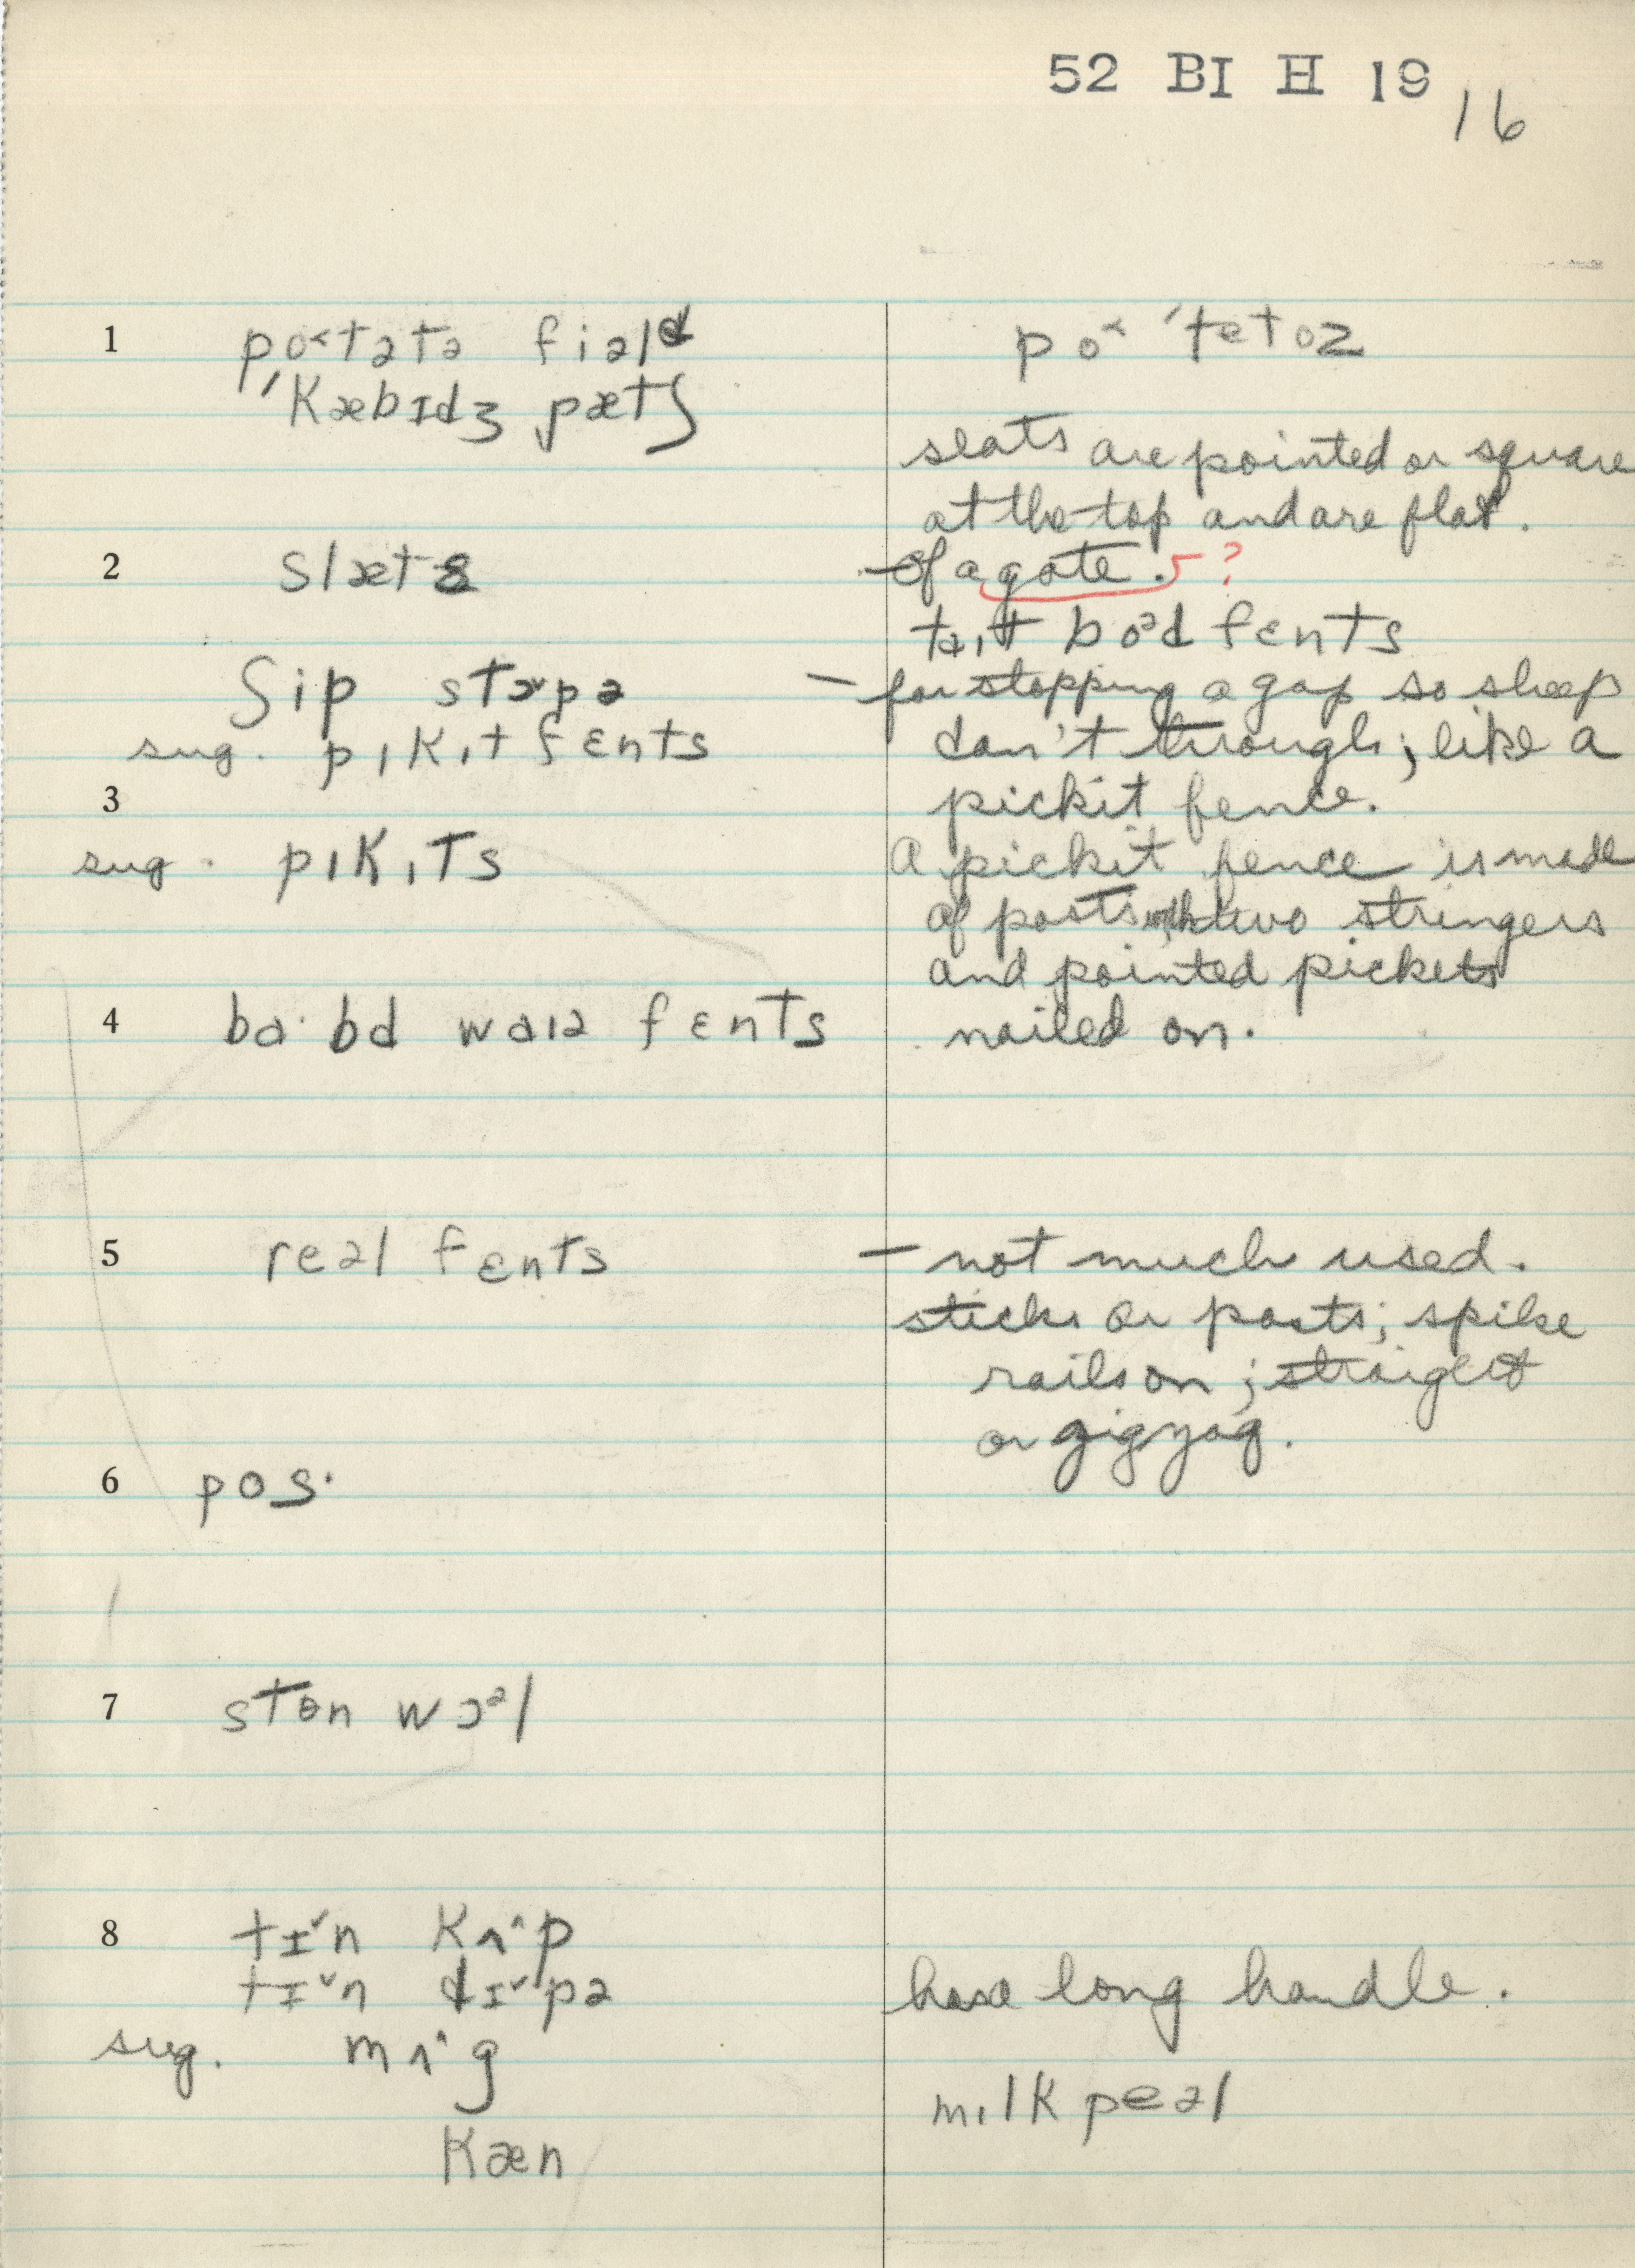 52 BI H 19
16
1 po˂tətə fiəld
po˂ ˈtetoz
ˈkæbɪdʒ pætʃ
slats are pointed or square
at the top and are flat.
2 slæts
of a gate. 5?
taɪt boᵊd fents
ʃip stɒ˅pə
– for stopping a gap so sheep
sug. pɪkɪt fɛnts
don't through; like a
3
pickit fence.
sug. pɪkɪts
A pickit fence is made
of posts with two stringers
and pointed pickets
4 ba·bd waɪə fɛnts
nailed on.
5 reəl fɛnts
– not much used.
sticks or posts; spike
rails on; straight
or zigzag.
6 pos·
7 stɵn wɔᵊl
8 tɪ˅n kʌ˄p
tɪ˅n dɪ˅pə
has a long handle.
sug. mʌ˄g
mɪlk peəl
kæn